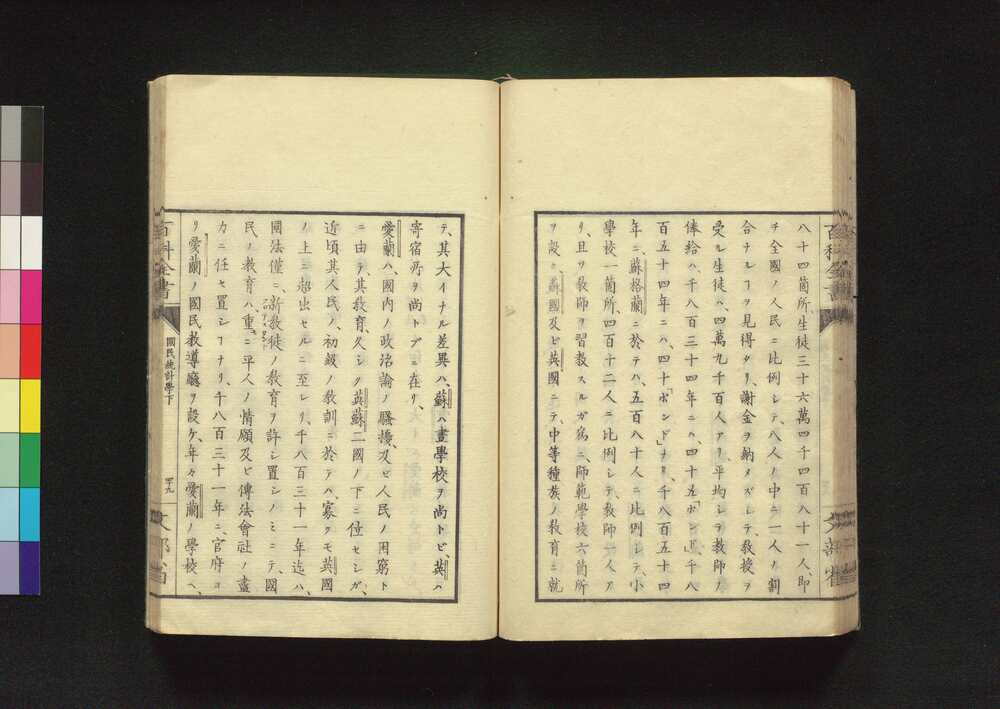 百科全書
文部省
八十四箇所、生徒三十六萬四千四百八十一人、即
チ全國ノ人民ニ比例シテ、八人ノ中ニ一人ノ割
合ナルヿヲ見得タリ、謝金ヲ納メズシテ教授ヲ
受ル生徒ハ、四萬九千百人アリ、平均シテ教師ノ
俸給ハ、千八百三十四年ニハ、四十五「ポンド」、千八
百五十四年ニハ、四十「ポンド」ナリ、千八百五十四
年ニ、蘇格蘭ニ於テハ、五百八十人ニ比例シテ、小
學校一箇所、四百十二人ニ比例シテ、教師一人ア
リ、且ツ教師ヲ習教スルガ爲ニ、師範學校六箇所
ヲ設ク、蘇國及ビ英國ニテ、中等種族ノ教育ニ就
テ、其大イナル差異ハ、蘇ハ晝學校ヲ尚トビ、英ハ
寄宿所ヲ尚トブニ在リ、
愛蘭ハ、國内ノ政治論ノ騒擾、及ビ人民ノ困窮ト
ニ由テ、其教育、久シク英蘇二國ノ下ニ位セシガ、
近頃其人民ノ、初級ノ教訓ニ於テハ、寡クモ英國
ノ上ニ超出セルニ至レリ、千八百三十一年迄ハ、
國法僅ニ、新教徒ノ教育ヲ許シ置シノミニテ、國
民ノ教育ハ、重ニ平人ノ情願及ビ傳法會社ノ盡
力ニ任セ置シヿナリ、千八百三十一年ニ、官府ヨ
リ愛蘭ノ國民教導廳ヲ設ケ、年々愛蘭ノ學校ヘ、
百科全書
國民統計學下
四十九
文部省